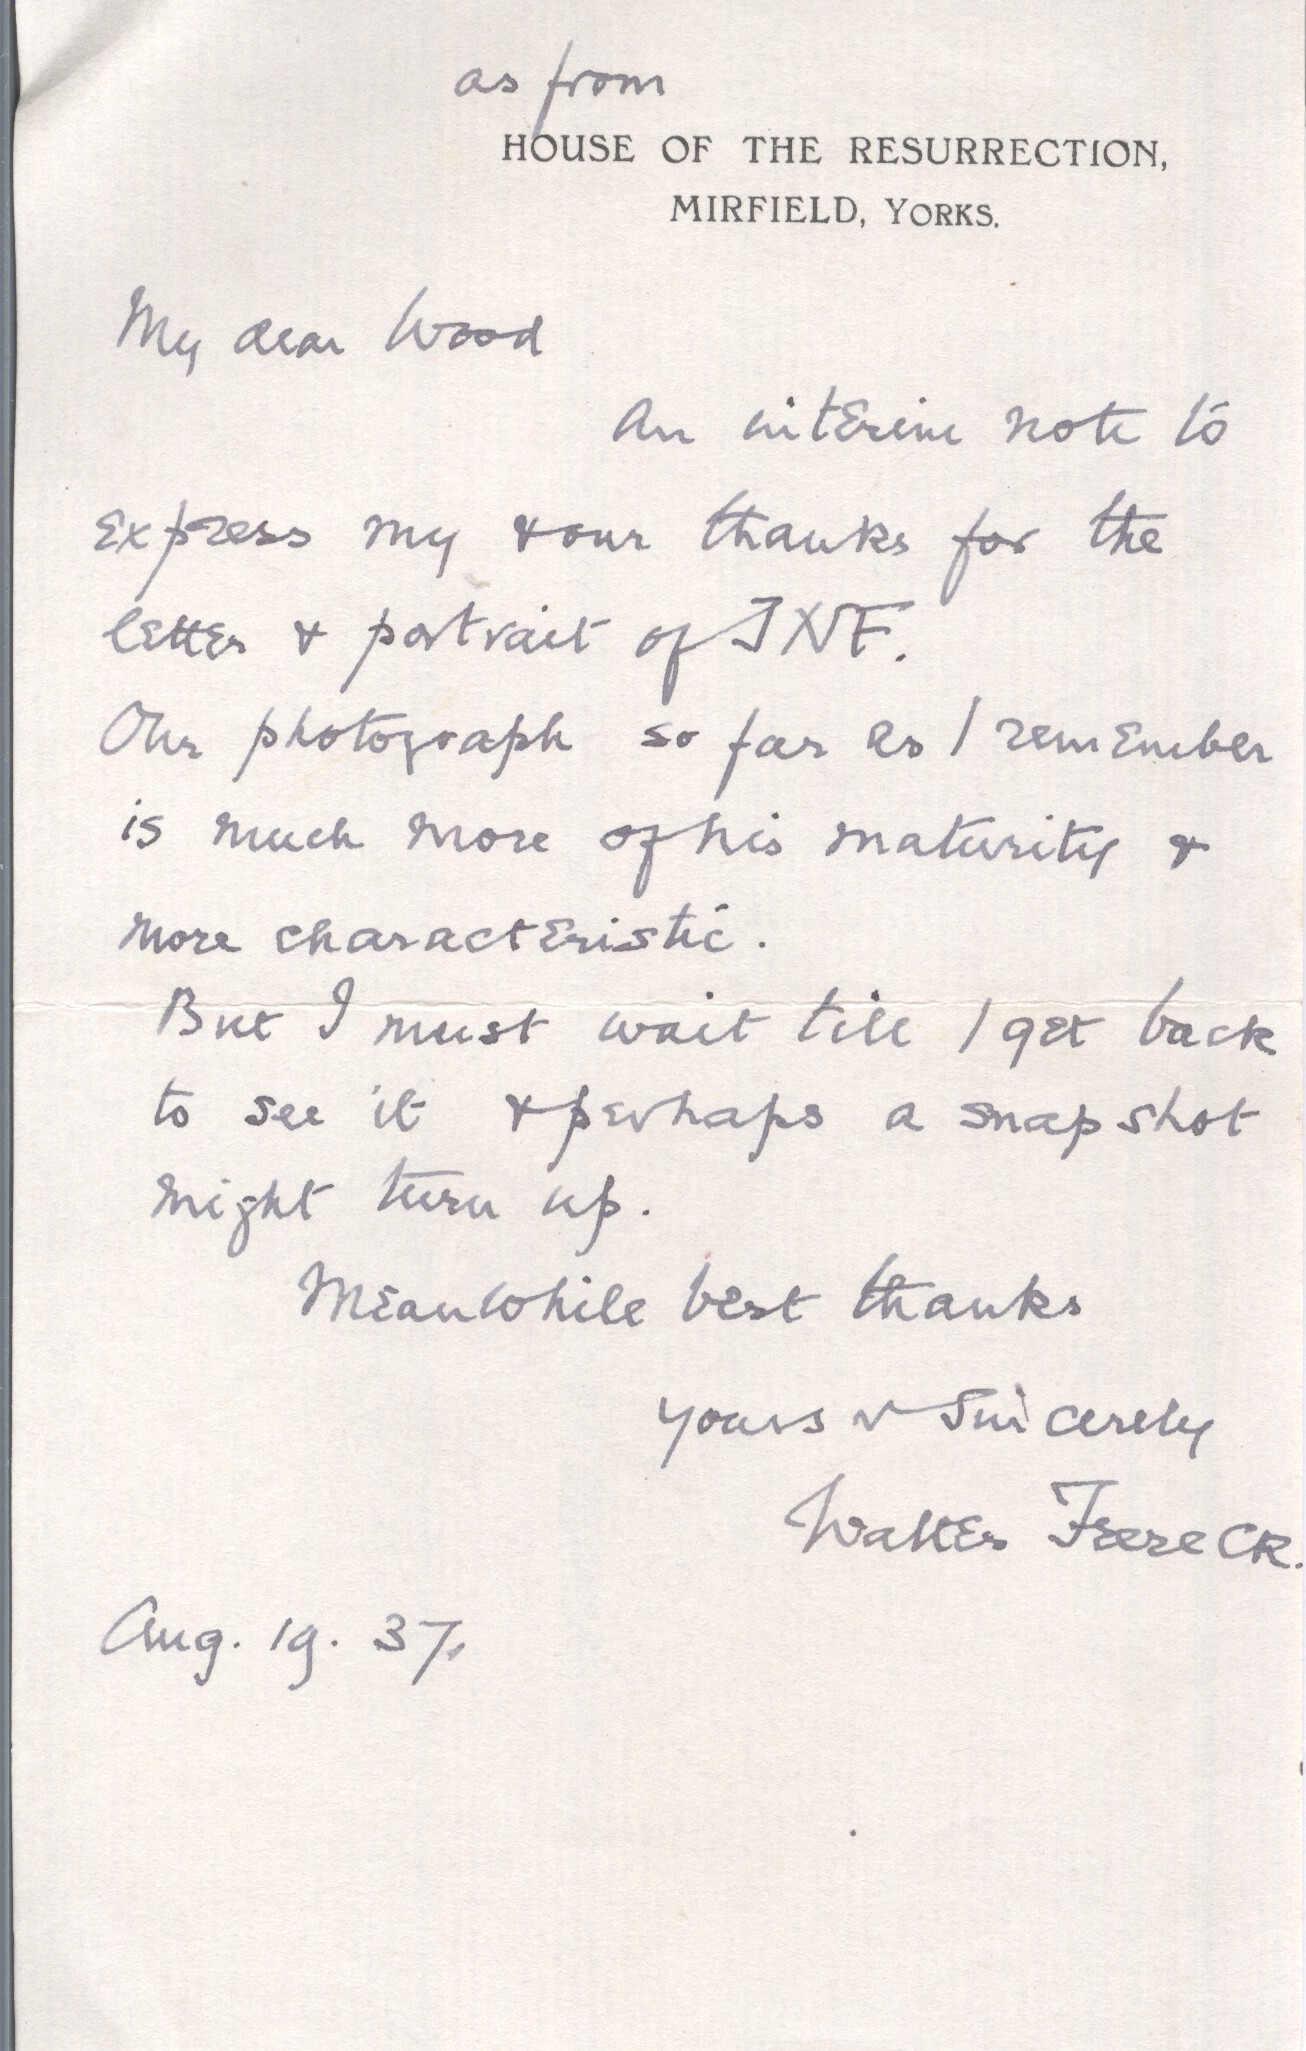 as from
HOUSE OF THE RESURRECTION,
MIRFIELD, YORKS.
My dear Wood
An interim note to
express my & our thanks for the
letter & portrait of JNF.
Our photograph so far as I remember
is much more of his maturity &
more characteristic.
But I must wait till I get back
to see it & perhaps a snapshot
might turn up.
Meanwhile best thanks
Yours v sincerely
Walter Frere CR.
Aug. 19. 37.